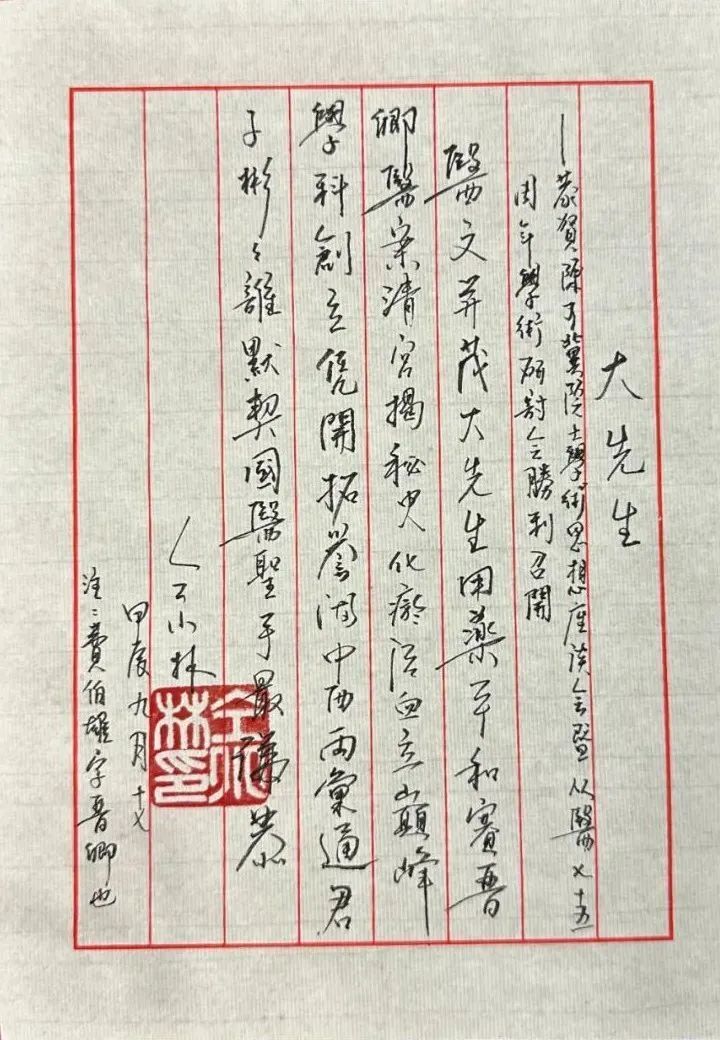 大先生
—恭賀陳可冀院士學術思想座談会暨从醫七十五
周年學術研討会勝利召開
醫文并茂大先生用藥平和賽晋
卿醫案清宮揭秘史化瘀活血立巔峰
學科創立凭開拓譽滿中西兩彙通君
子彬々誰默契國醫聖手最謙恭
仝小林
甲辰九月十七
注:費伯雄字晋卿也
仝小林印